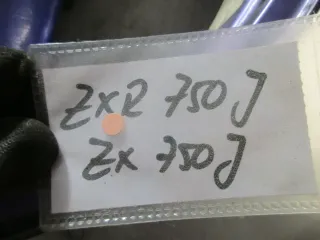 ZXR 750 J
ZX 750 J